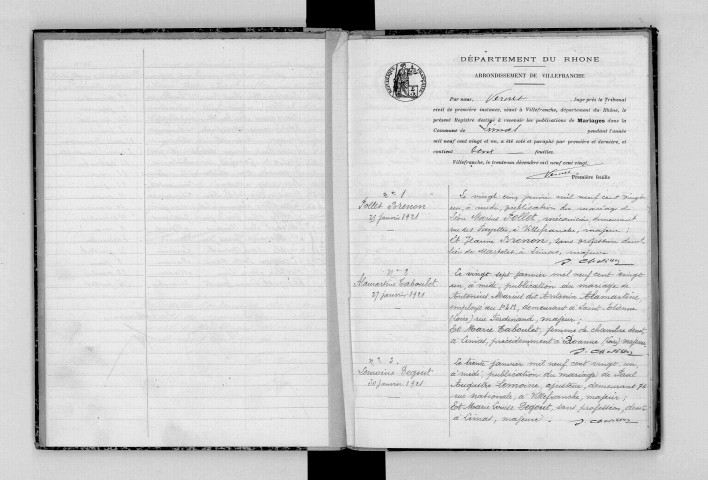 DÉPARTEMENT DU RHONE
ARRONDISSEMENT DE VILLEFRANCHE
Par nous, Vernet Juge près le Tribunal
civil de première instance, séant à Villefranche, département du Rhône, le
présent Registre destiné à recevoir les publications de Mariages dans la
Commune de Limas pendant l'année
mil neuf cent vingt et un, a été coté et paraphé par première et dernière, et
contient feuilles.
Villefranche, le trente-un décembre mil neuf cent vingt.
Première feuille
n° 1
Jollet Brenon
25 janvier 1921
Le vingt cinq janvier mil neuf cent vingt
un, à midi, publication du mariage de
Léon Marius Jollet, mécanicien, demeurant
rue des Fayettes, à Villefranche, majeur;
Et Jeanne Brenon, sans profession demt
lieu de Martelet à Limas, majeure
n° 2
Alamartine Taboulet
27 janvier 1921
Le vingt sept janvier mil neuf cent vingt
un, à midi, publication du mariage de
Antonius Marius dit Antonin Alamartine,
employé au PLM, demeurant à Saint-Etienne
(Loire) rue Ferdinand, majeur;
Et Marie Taboulet, femme de chambre demt
à Limas, précédemment à Roanne (Loire) majeure
n° 3.
Lemoine Degout
30 janvier 1921
Le trente janvier mil neuf cent vingt un,
à midi, publication du mariage de Paul
Auguste Lemoine, ajusteur, demeurant 74
rue nationale, à Villefranche, majeur;
Et Marie Louise Degout, sans profession, demt
à Limas, majeure.